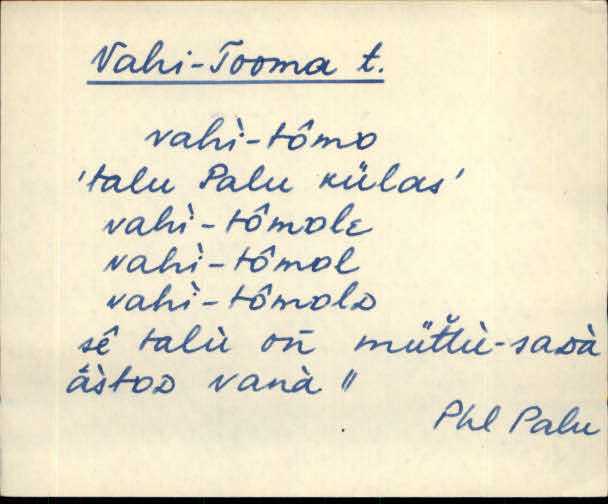 Vahi-Tooma t.
vahì-tômo
'talu Palu külas'
vahì-tômole
vahì-tômol
vahì-tômolᴅ
sê talù oñ müt̆t̆ù-saᴅà
áàstoᴅ vanà "
Phl Palu